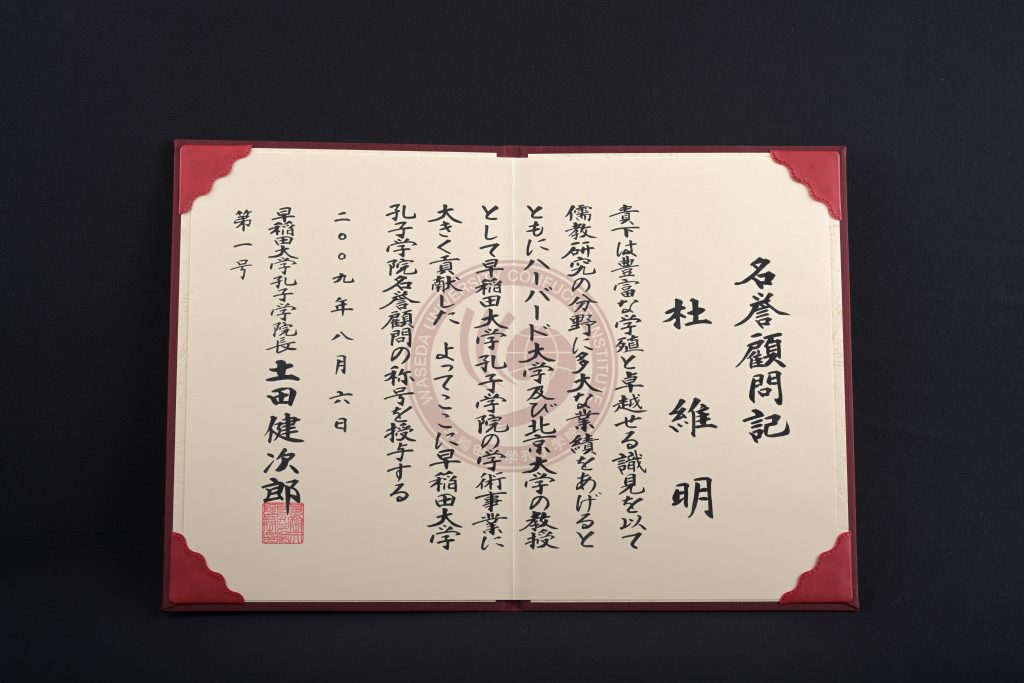 名誉顧問記
杜維明
貴下は豊富な学殖と卓越せる識見を以て
儒教研究の分野に多大な業績をあげると
ともにハーバード大学及び北京大学の教授
として早稲田大学孔子学院の学術事業に
大きく貢献した よってここに早稲田大学
孔子学院名誉顧問の称号を授与する
二〇〇九年八月六日
早稲田大学孔子学院長 土田健次郎
第一号
WASEDA UNIVERSITY CONFUCIUS INSTITUTE